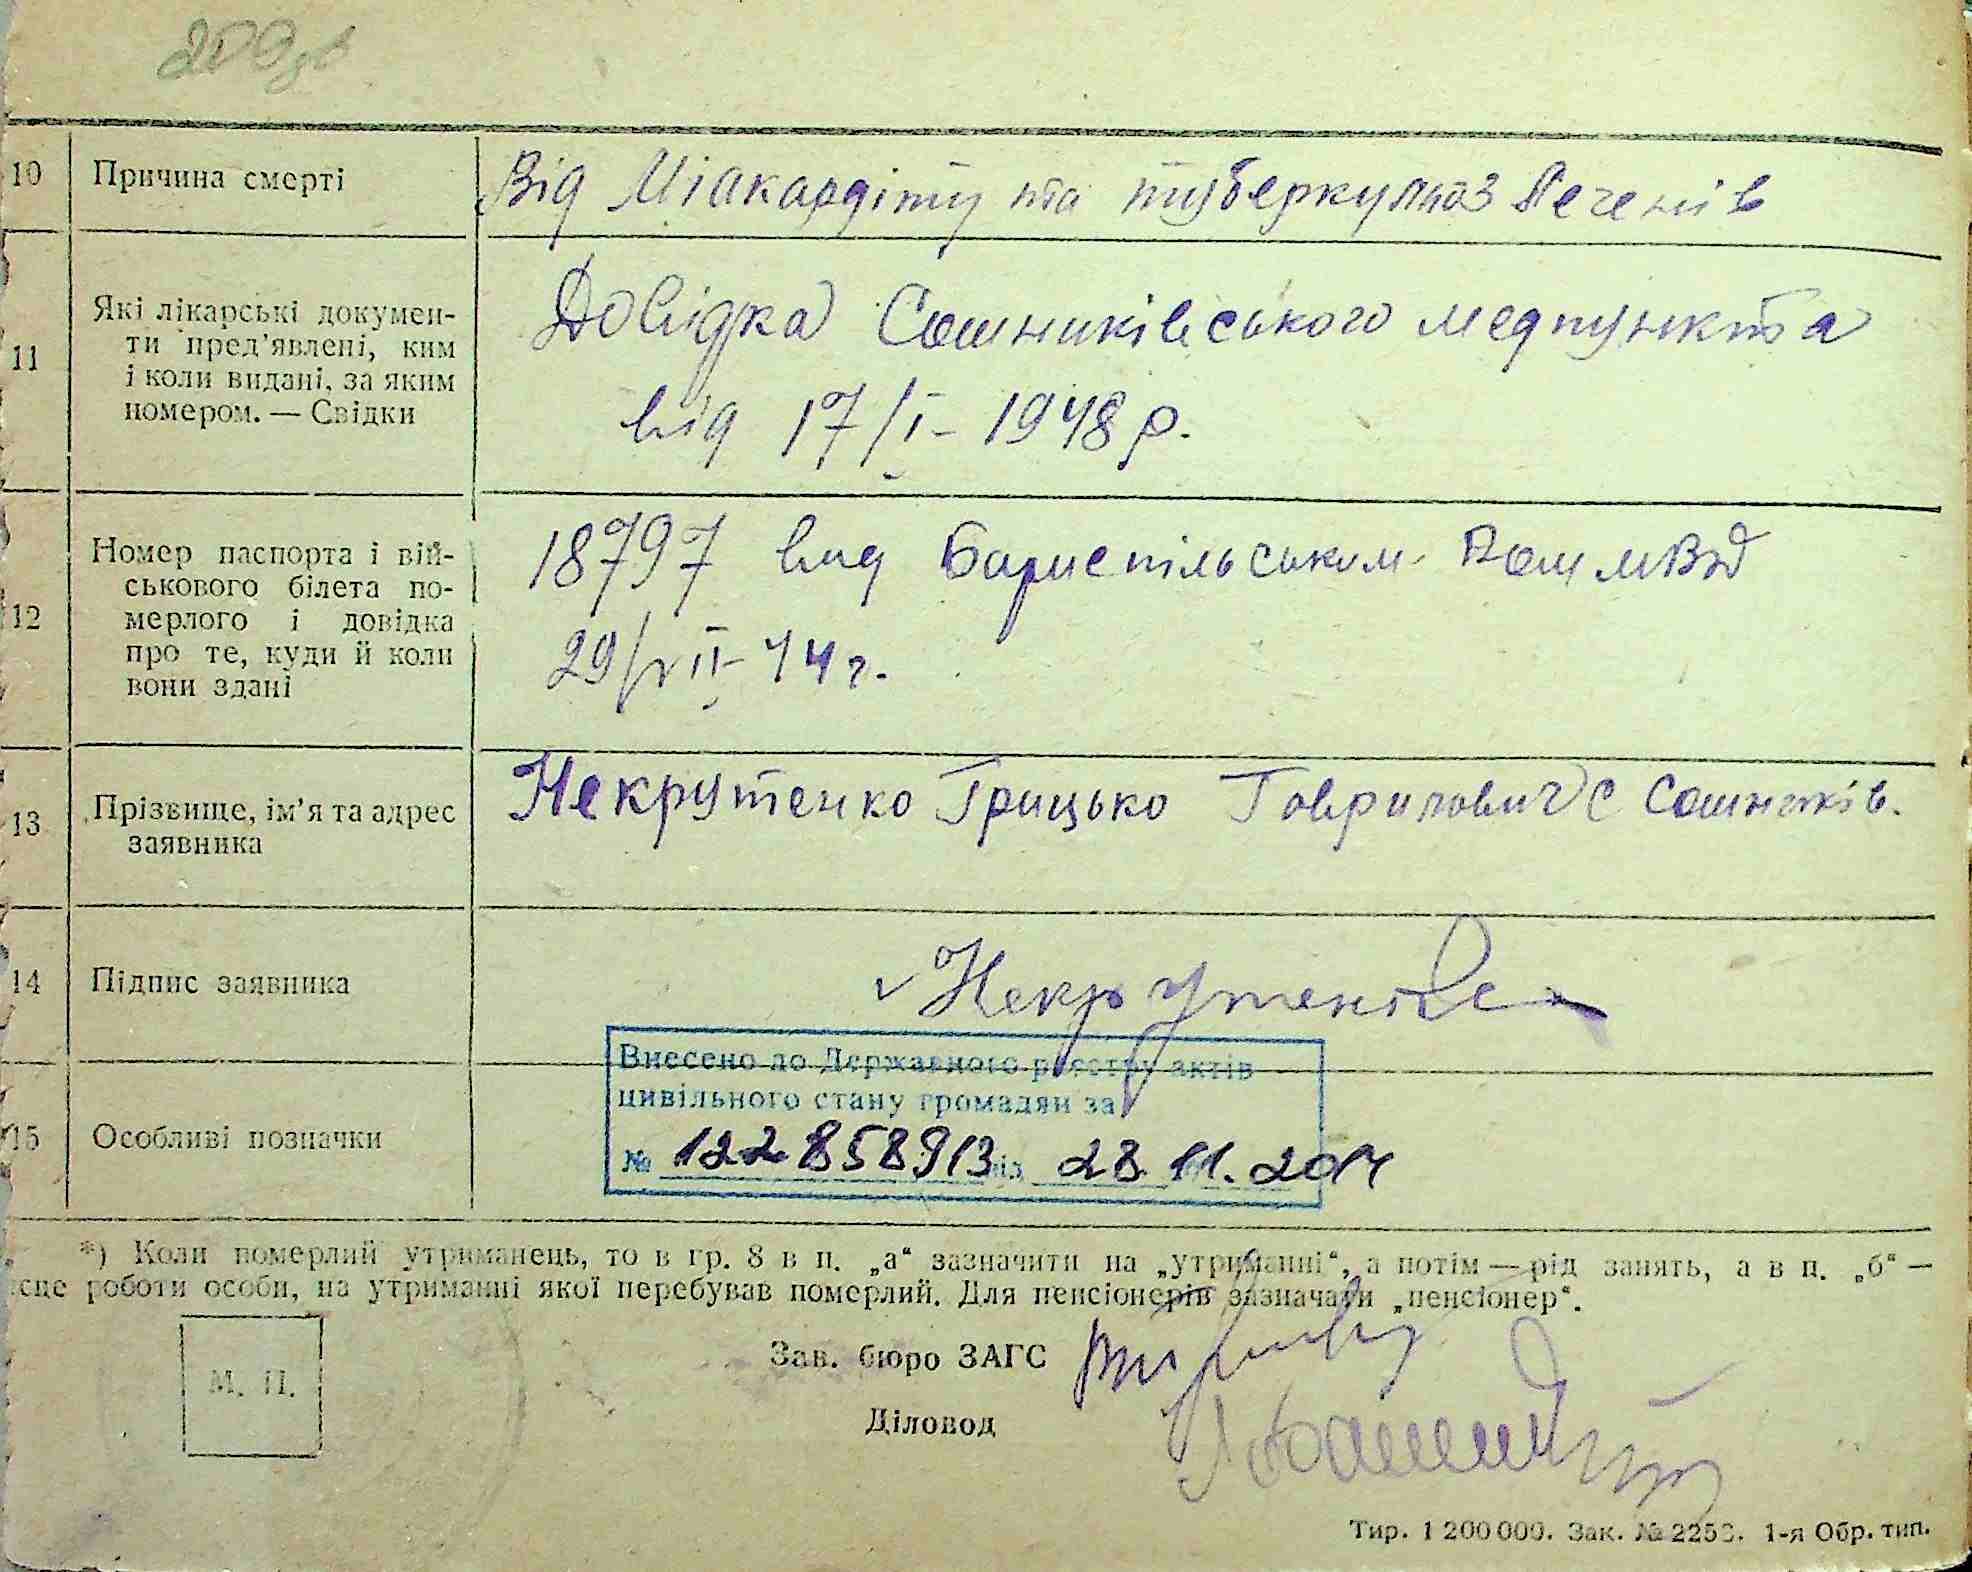 209зв
10 Причина смерті Від Міакардіту та туберкульоз Легенів
11 Які лікарські докумен-
ти пред'явлені, ким
і коли видані, за яким
номером. — Свідки
Довідка Сошниківського медпункта
від 17/I- 1948 р.
12 Номер паспорта і вій-
ськового білета по-
мерлого і довідка
про те, куди й коли
вони здані
18797 вид Бориспільським МВД
29/VII- 44 г.
13 Прізвище, ім'я та адрес
заявника
Некрутенко Грицько Гаврилович с Сошників.
14 Підпис заявника Некрутенко
15 Особливі позначки
Внесено до Державного реєстру актів
цивільного стану громадян за
№ 122858913 від 28.11.2014
*) Коли померлий утриманець, то в гр. 8 в п. „а“ зазначити на „утриманні“, а потім — рід занять, а в п. „б“ —
сце роботи особи, на утриманні якої перебував померлий. Для пенсіонерів зазначати „пенсіонер“.
М. П.
Зав. бюро ЗАГС
Діловод
Тир. 1 200 000. Зак. № 2253. 1-я Обр. тип.